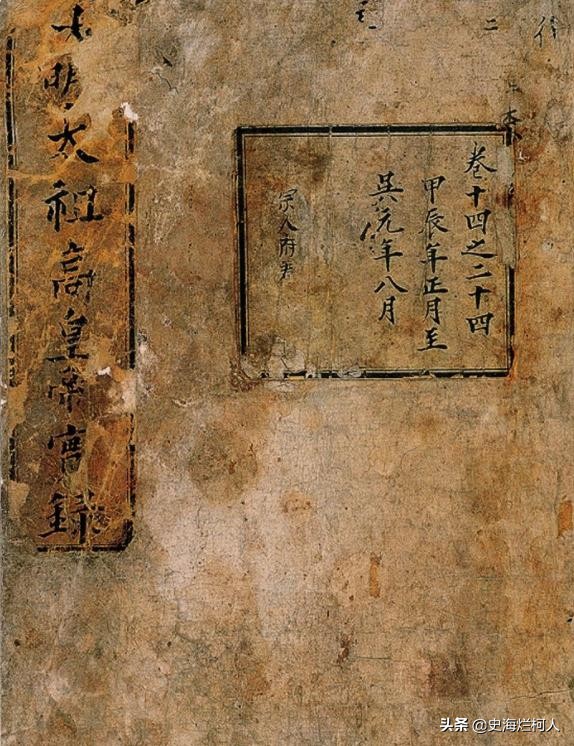 二
卷十四之二十四
甲辰年正月至
吳元年八月
大明太祖高皇帝實錄
头条 @史海烂柯人